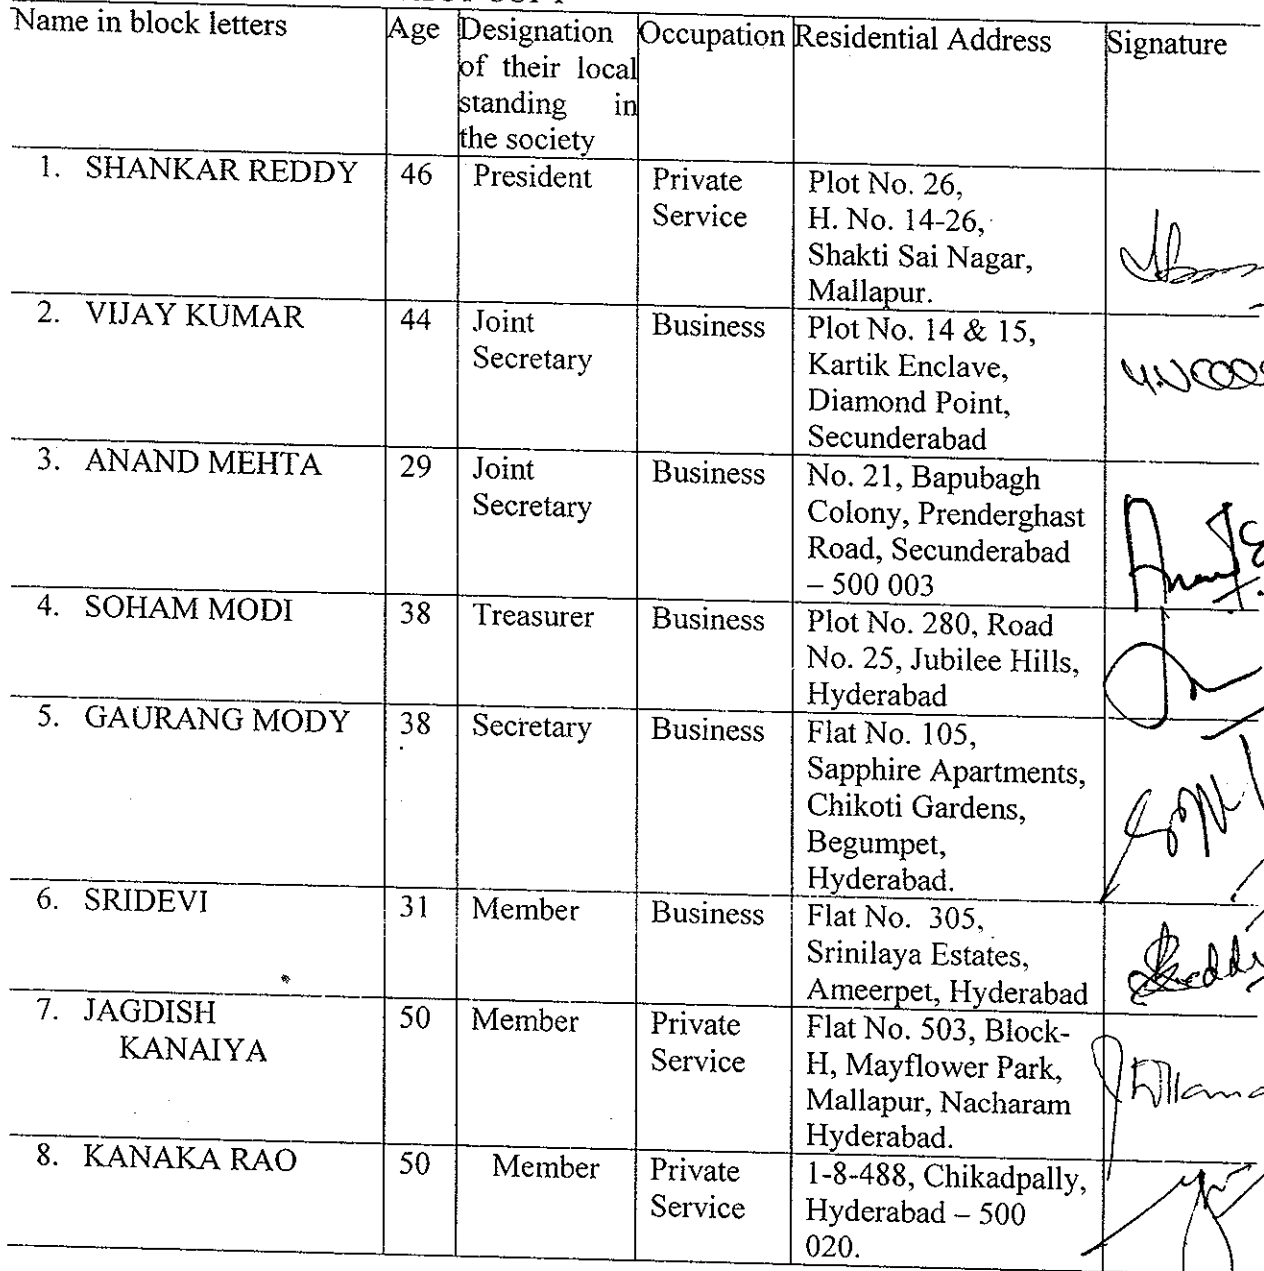 Name in block letters Age Designation of their local standing in the society Occupation Residential Address Signature
1. SHANKAR REDDY 46 President Private Service Plot No. 26, H. No. 14-26, Shakti Sai Nagar, Mallapur.
2. VIJAY KUMAR 44 Joint Secretary Business Plot No. 14 & 15, Kartik Enclave, Diamond Point, Secunderabad
3. ANAND MEHTA 29 Joint Secretary Business No. 21, Bapubagh Colony, Prenderghast Road, Secunderabad – 500 003
4. SOHAM MODI 38 Treasurer Business Plot No. 280, Road No. 25, Jubilee Hills, Hyderabad
5. GAURANG MODY 38 Secretary Business Flat No. 105, Sapphire Apartments, Chikoti Gardens, Begumpet, Hyderabad.
6. SRIDEVI 31 Member Business Flat No. 305, Srinilaya Estates, Ameerpet, Hyderabad
7. JAGDISH KANAIYA 50 Member Private Service Flat No. 503, Block-H, Mayflower Park, Mallapur, Nacharam Hyderabad.
8. KANAKA RAO 50 Member Private Service 1-8-488, Chikadpally, Hyderabad – 500 020.